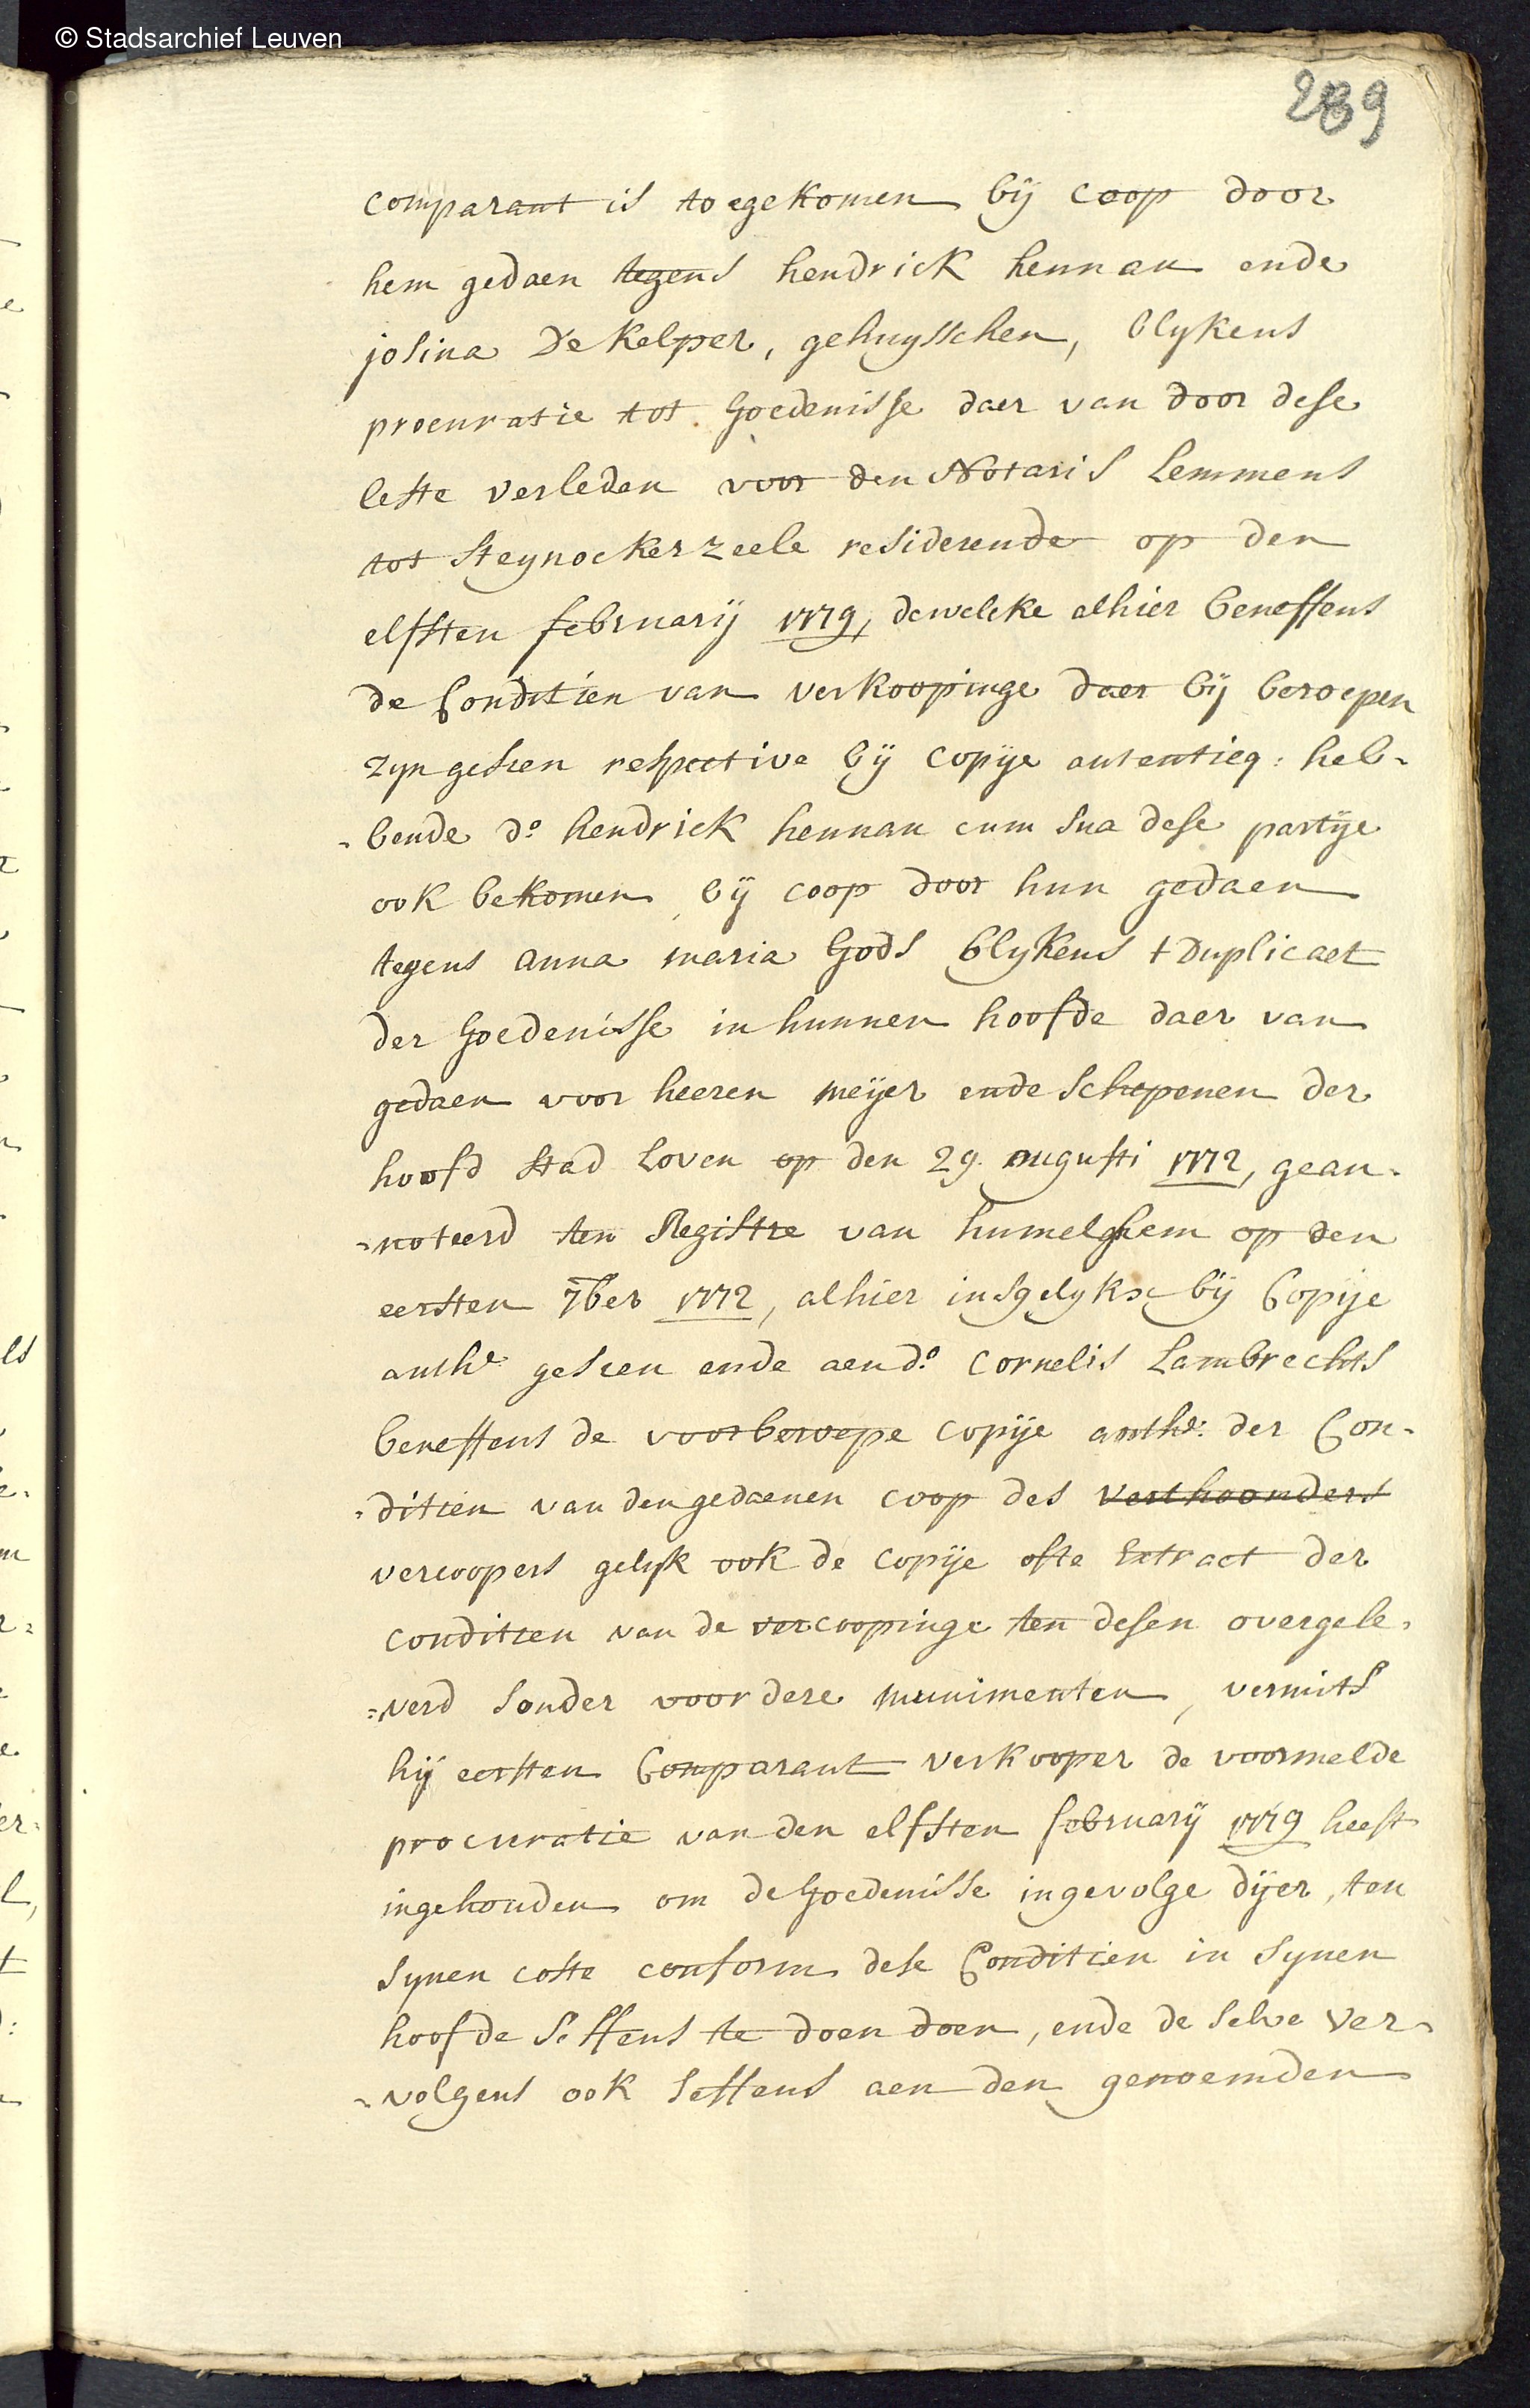 © Stadsarchief Leuven
289
comparant is toegekomen bij coop door
hem gedaen tegens hendrick hennau ende
josina De Kelper, gehuysschen, blykens
procuratie tot Goedenisse daer van door dese
leste verleden voor den Notaris Lemmens
tot Steynockerzeele residerende op den
elfsten februarij 1779, dewelcke alhier beneffens
de Conditien van verkoopinge daer bij beroepen
zyn gesien respective bij copije autentieq: heb-
-bende d.o hendrick hennau cum sua dese partije
ook bekomen bij coop door hun gedaen
tegens anna maria Gods blykens t Duplicaet
der Goedenisse in hunnen hoofde daer van
gedaen voor heeren meijer ende schepenen der
hoofd stad Loven op den 29. augusti 1772, gean-
-noteerd ten Registre van humelghem op den
eersten 7ber 1772, alhier insgelykx bij Copije
authe gesien ende aen d.o Cornelis Lambrechts
beneffens de voorberoepe copije authe: der Con-
-ditien van den gedaenen coop des verthoonders
vercoopers gelyk ook de copije ofte Extract der
conditien van de vercoopinge ten desen overgele-
=verd sonder voordere munimenten, vermits
hij eersten Comparant verkooper de voormelde
procuratie van den elfsten februarij 1779 heeft
ingehouden om de Goedenisse ingevolge dijer, ten
synen coste conform dese Conditien in synen
hoofde seffens te doen doen, ende de selve ver-
-volgens ook seffens aen den genoemden